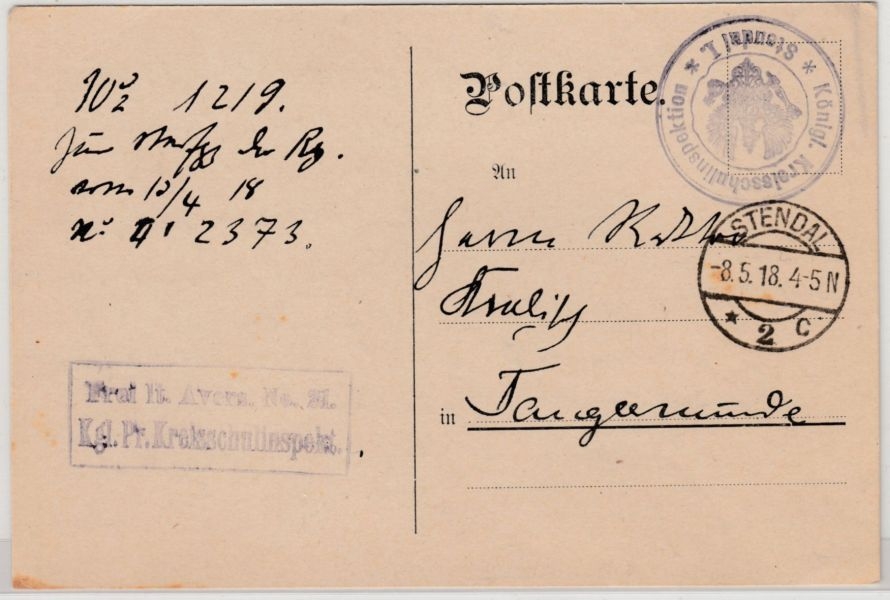 No 1219.
zur Verfgg der Rg.
vom 13/4 18
No 2373.
Frei lt. Avers. No. 21.
Kgl. Pr. Kreisschulinspekt.
Postkarte.
* Königl. Kreisschulinspektion * Stendal I.
An
Herrn Rektor
STENDAL
-8.5.18. 4-5 N
* 2 c
in Tangermünde